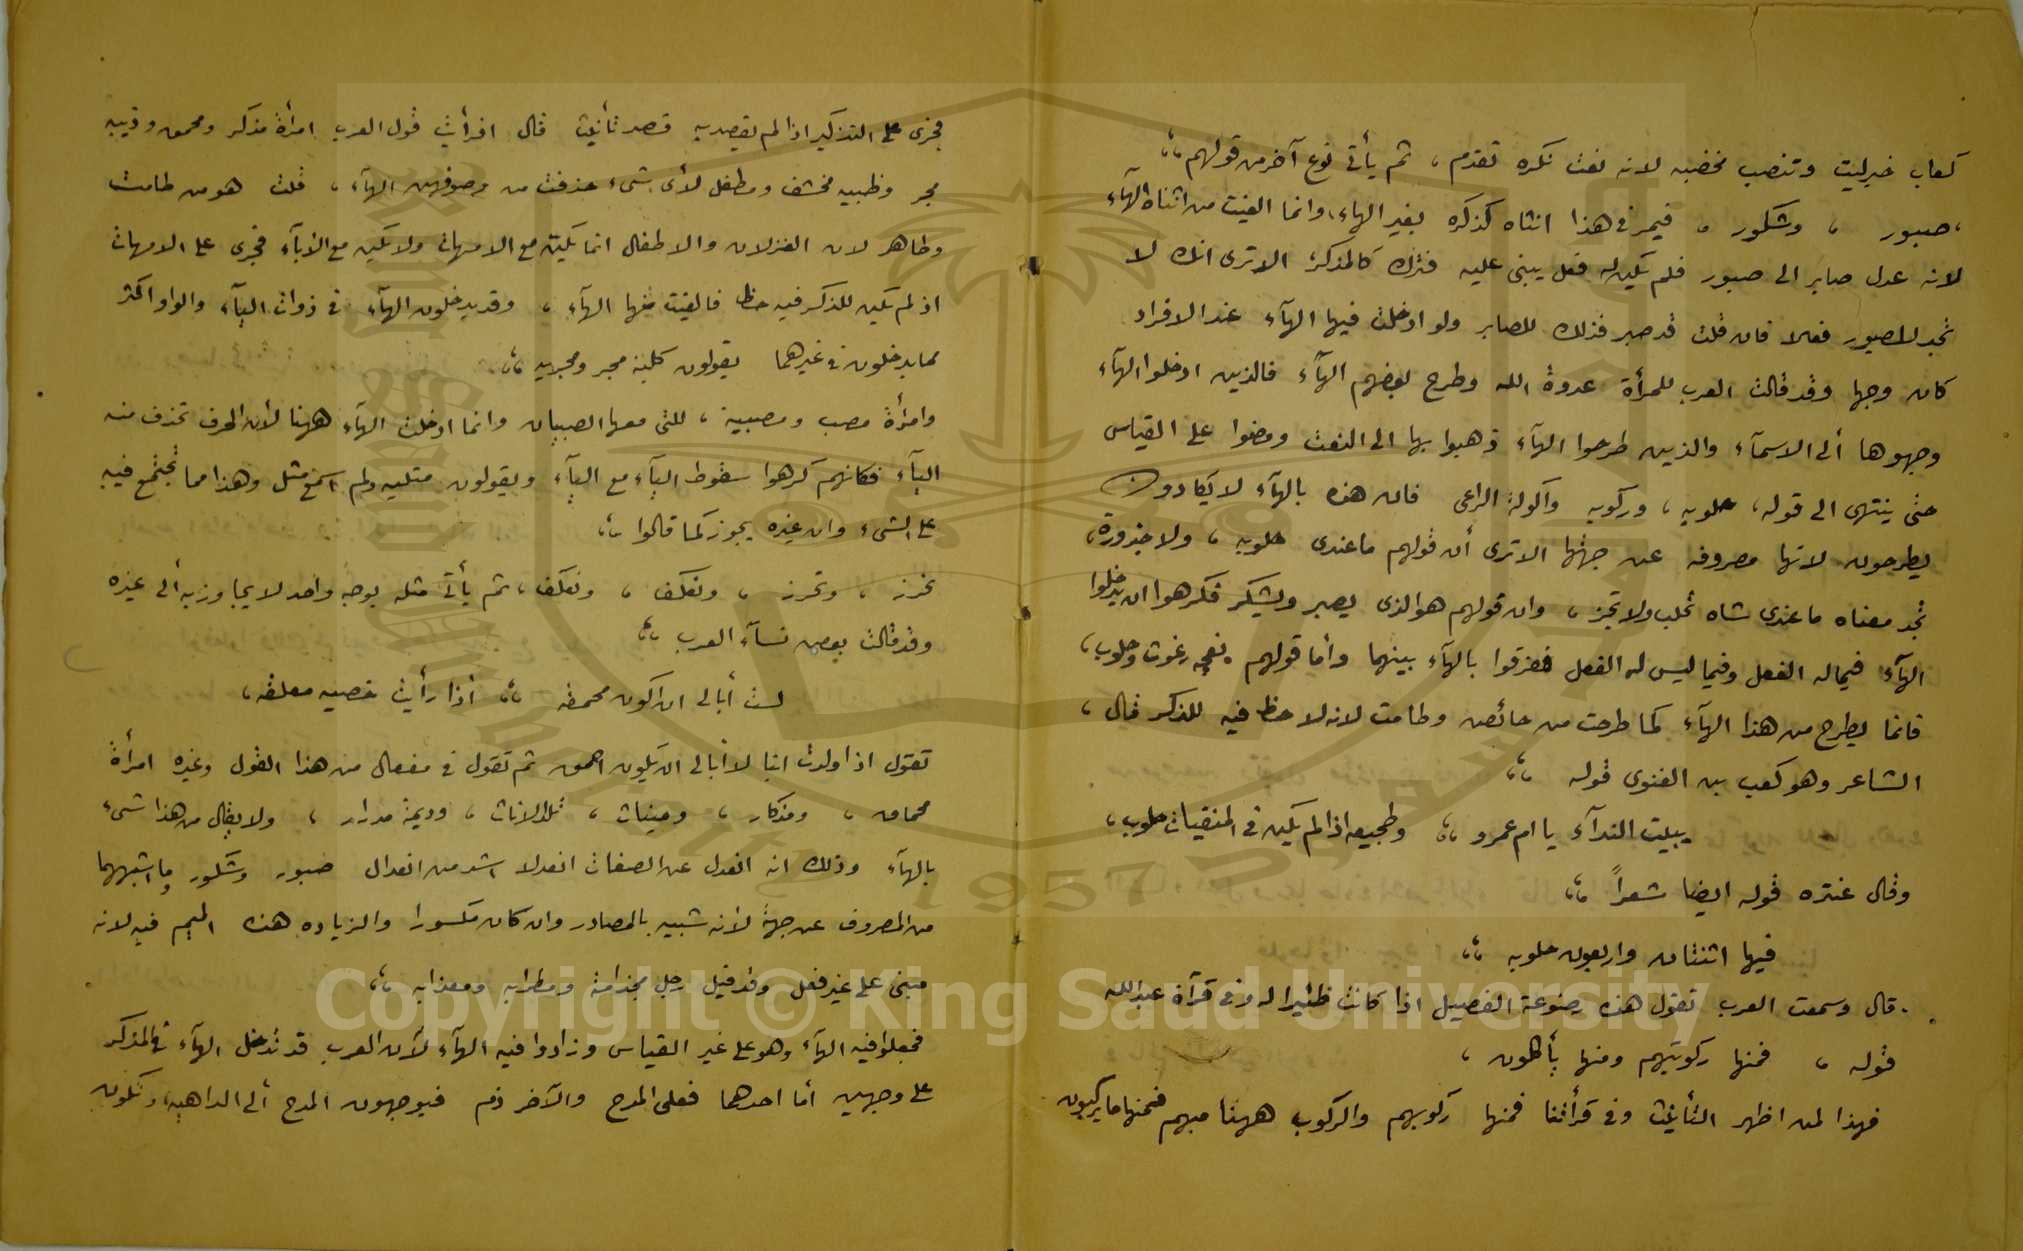 كعاب خبر ليت وتنصب مخضبه لانه نعت نكره تقدم ، ثم يأتى نوع آخر من قولهم ،،
، صبور ، وشكور ، فيمر فى هذا انثاه كذكره بغير الهاء، وانما الغيت من انثاه الهآء
لانه عدل صابر الى صبور فلم يكن له فعل يبنى عليه فترك كالمذكر، الا ترى انك لا
تجد للصبور فعلا فان قلت قد صبر فذلك للصابر ولو ادخلت فيها الهآء عند الافراد
كان وجها وقد قالت العرب للمرأة عدوة الله وطرح بعضهم الهآء فالذين ادخلوا الهآء
وجهوها ألى الاسمآء والذين طرحوا الهآء ذهبوا بها الى النعت ومضوا على القياس
حتى ينتهى الى قوله، حلوبه ، وركوبه وآكولة الراعى فان هذه بالهآء لا يكادون
يطرحون لانها مصروفه عن جهتها الا ترى أن قولهم ما عندى حلوبه ، ولا جزورة،
تجد معناه ما عندى شاه تحلب ولا تجز ، وان قولهم هو الذى يصبر ويشكر فكرهوا ان يدخلوا
الهآء فيما له الفعل وفيما ليس له الفعل ففرقوا بالهآء بينهما وأما قولهم نعجه رغوث وحلوب،
فانما يطرح من هذا الهآء كما طرحت من حائض وطامث لانه لا حظ فيه للذكر قال ،
الشاعر وهو كعب بن الغنوى قوله ،،
يبيت الندآء يا ام عمرو ،، وطجيعه اذا لم يكن فى المنقيات حلوب،
وقال عنتره قوله ايضا شعراً ،،
فيها اثنتان واربعون حلوبه ،،
. قال وسمعت العرب تقول هذه رضوعة الفصيل اذا كانت ظئيرا له وفى قرآة عبد الله
قوله ، فمنها ركوبتهم ومنها يأكلون ،
فهذا لمن اظهر التأنيث وفى قرأتنا فمنها ركوبهم والركوب ههنا مبهم فمنها ما يركبون
فجرى على التذكير اذا لم يقصد به قصد تأنيث قال افرأيت قول العرب امرأة مذكر ومحمق وذيبه
مجر وظبيه مخشف ومطفل لأى شىء حذفت من وصوفهن الهآء ، قلت هو من طامث
وطاهر لان الغزلان والاطفال انما يكن مع الامهات ولا يكن مع الأبآء فجرى على الامهات
اذ لم يكن للذكر فيه حظ فالغيت منها الهآء ، وقد يدخلون الهآء فى ذوات اليآء والواو اكثر
مما يدخلون فى غيرهما يقولون كلبة مجر ومجريه ،،
وامرأة مصب ومصبية ، للتى معها الصبيان وانما ادخلت الهآء ههنا لأن الحرف تحذف منه
اليآء فكانهم كرهوا سقوط اليآء مع اليآء ويقولون متليه ولم اسمع متل وهذا مما تجتمع فيه
على الشىء وان غيره يجوز كما قالوا ،،
تحرز ، وتحرز ، وتعكف ، وتعكف ، ثم يأتى مثله بوجه واحد لا يجاوز به ألى غيره
وقد قالت بعض نسآء العرب ،،
لست أبالى ان اكون محمقه ،، أذا رأيت خصيه معلقه ،
تقول اذا ولدت ابنا لا ابالى ان يكون احمق ثم تقول فى مفعال من هذا القول وغيره امرأة
محماق ، ومذكار ، ومينات ، تلد الانات ، وديمة مدرار ، ولا يقال من هذا شىء
بالهآء وذلك انه انعدل عن الصفات انعدلا اشد من انعدال صبور وشكور وما اشبههما
من المصروف عن جهة لأنه شبيه بالمصادر وان كان مكسورا والزياده هذه الميم فيه لانه
مبنى على غير فعل وقد قيل رجل مجذامة ومطرابه ومعزابه ،،
فجعلوا فيه الهآء وهو على غير القياس وزادوا فيه الهآء لأن العرب قد تدخل الهآء فى المذكر
على وجهين أما احدهما فعلى المدح والآخر ذم فيوجهون المدح ألى الداهيه، وتكون
Copyright © King Saud University
1957